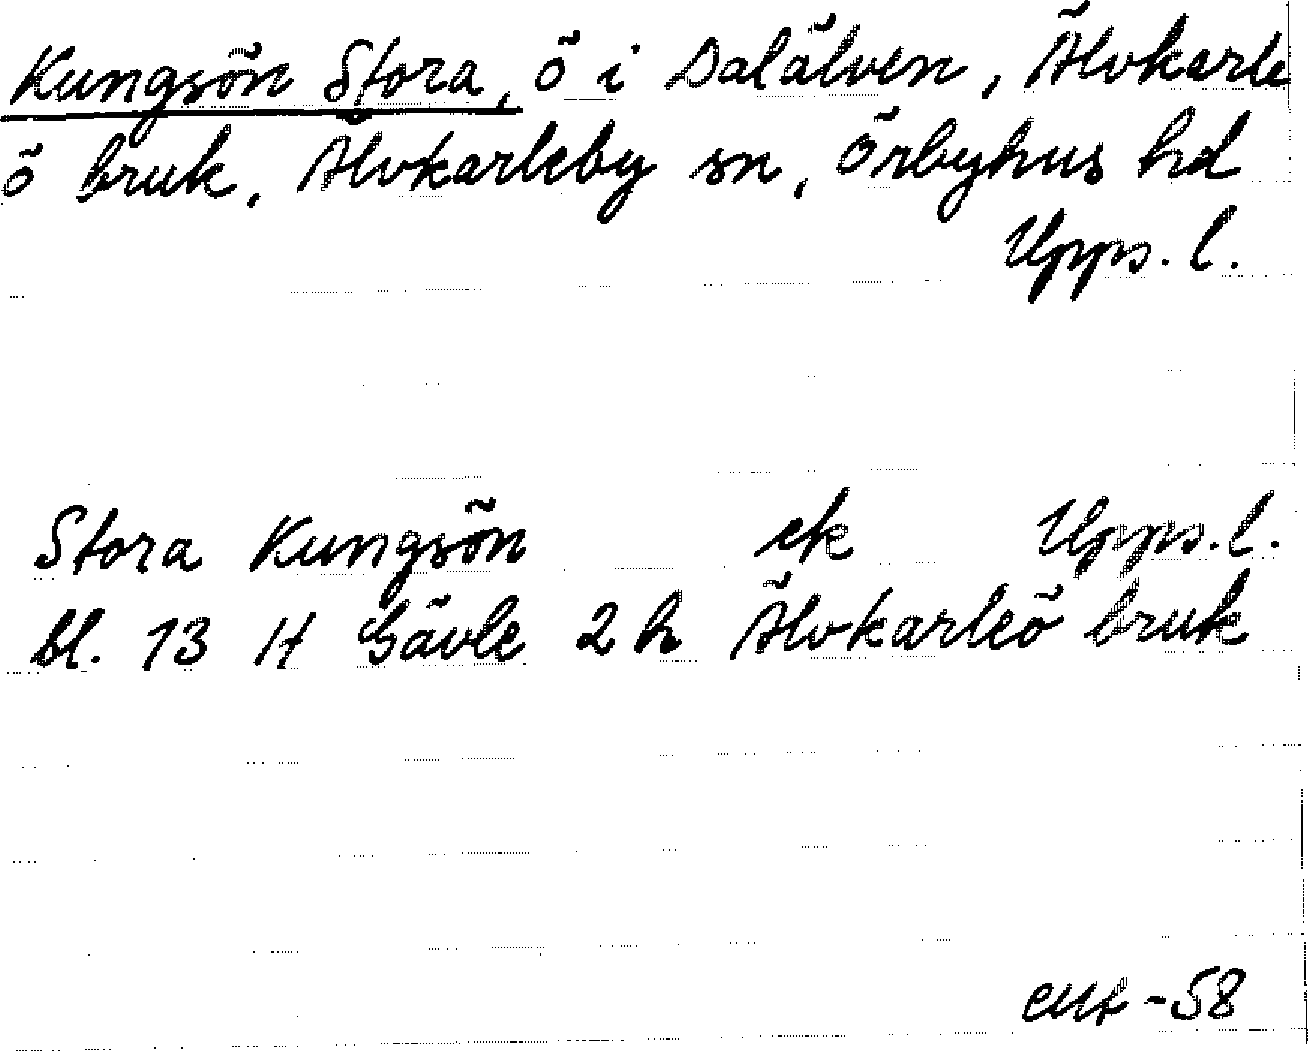 Kungsön Stora, ö i Dalälven, Älvkarle
ö bruk, Älvkarleby sn, Örbyhus hd
Upps. l.
Stora Kungsön ek Upps. l.
bl. 13 H Gävle 2 h Älvkarleö bruk
-58